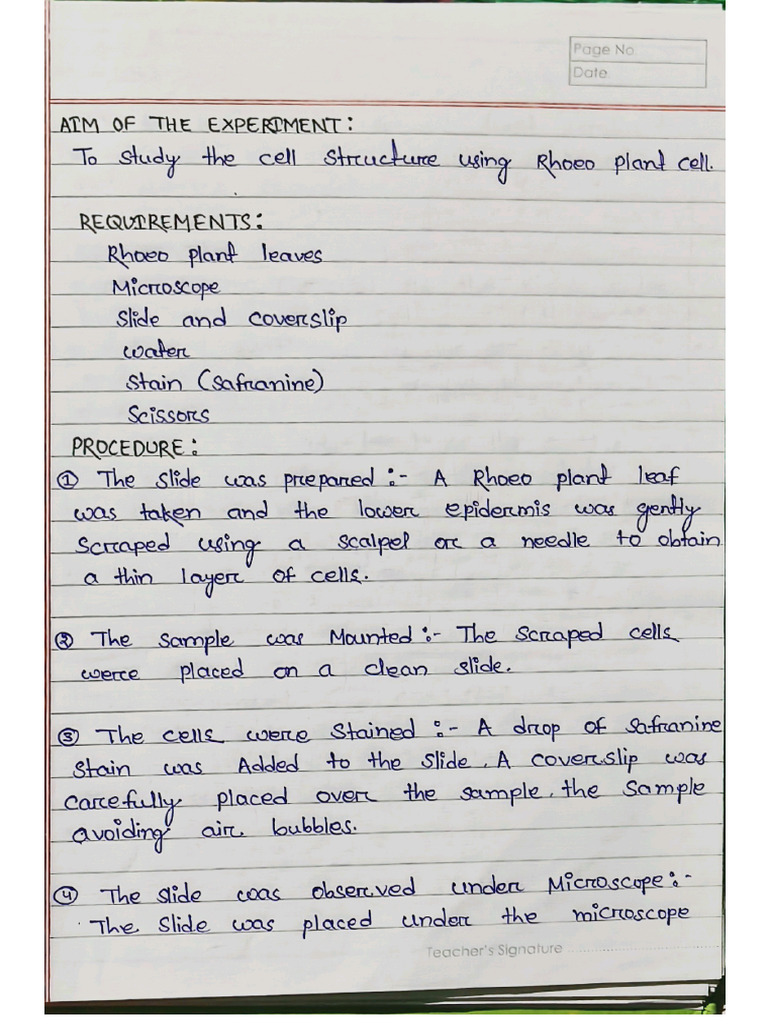 Page No.
Date.
AIM OF THE EXPERIMENT:
To study the cell structure using Rhoeo plant cell.
REQUIREMENTS:
Rhoeo plant leaves
Microscope
Slide and coverslip
water
Stain (Safranine)
Scissors
PROCEDURE:
① The slide was prepared :- A Rhoeo plant leaf
was taken and the lower epidermis was gently
Scraped using a scalpel or a needle to obtain
a thin layer of cells.
② The sample was Mounted :- The scraped cells
were placed on a clean slide.
③ The cells were Stained :- A drop of safranine
Stain was Added to the slide. A coverslip was
carefully placed over the sample. the Sample
avoiding air bubbles.
④ The slide was observed under Microscope :-
The Slide was placed under the microscope
Teacher's Signature